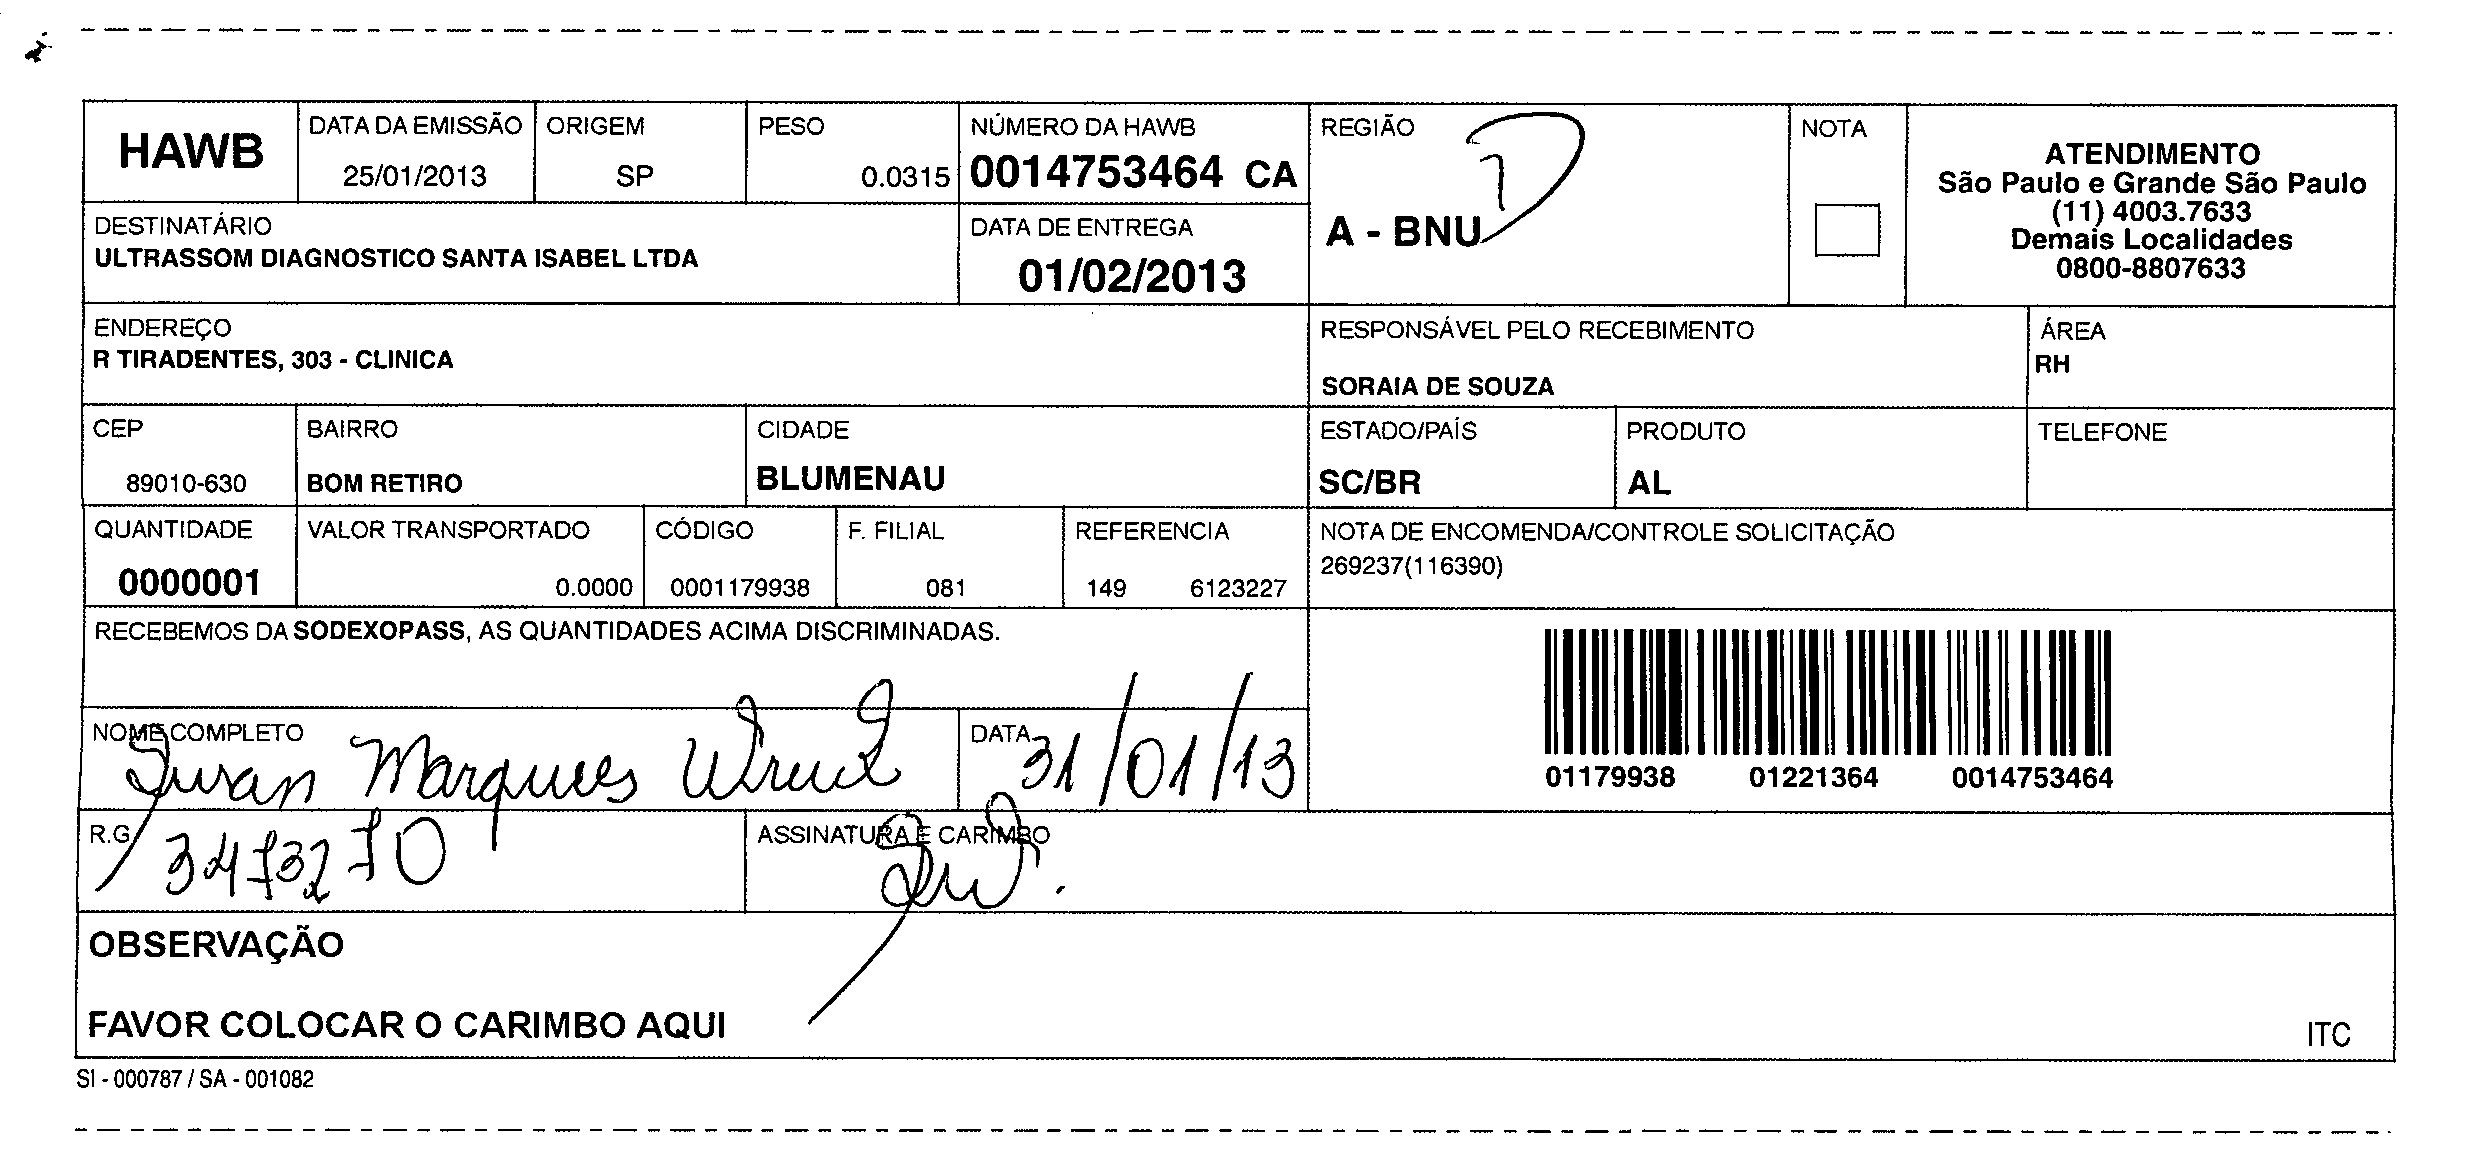 HAWB
DATA DA EMISSÃO
25/01/2013
ORIGEM
SP
PESO
0.0315
NÚMERO DA HAWB
0014753464 CA
REGIÃO
A - BNU
NOTA
ATENDIMENTO
São Paulo e Grande São Paulo
(11) 4003.7633
Demais Localidades
0800-8807633
DESTINATÁRIO
ULTRASSOM DIAGNOSTICO SANTA ISABEL LTDA
DATA DE ENTREGA
01/02/2013
ENDEREÇO
R TIRADENTES, 303 - CLINICA
RESPONSÁVEL PELO RECEBIMENTO
SORAIA DE SOUZA
ÁREA
RH
CEP
89010-630
BAIRRO
BOM RETIRO
CIDADE
BLUMENAU
ESTADO/PAÍS
SC/BR
PRODUTO
AL
TELEFONE
QUANTIDADE
0000001
VALOR TRANSPORTADO
0.0000
CÓDIGO
0001179938
F. FILIAL
081
REFERENCIA
149 6123227
NOTA DE ENCOMENDA/CONTROLE SOLICITAÇÃO
269237(116390)
RECEBEMOS DA SODEXOPASS, AS QUANTIDADES ACIMA DISCRIMINADAS.
01179938 01221364 0014753464
NOME COMPLETO
Marques
DATA
31/01/13
R.G
3473270
ASSINATURA E CARIMBO
OBSERVAÇÃO
FAVOR COLOCAR O CARIMBO AQUI
ITC
SI - 000787 / SA - 001082